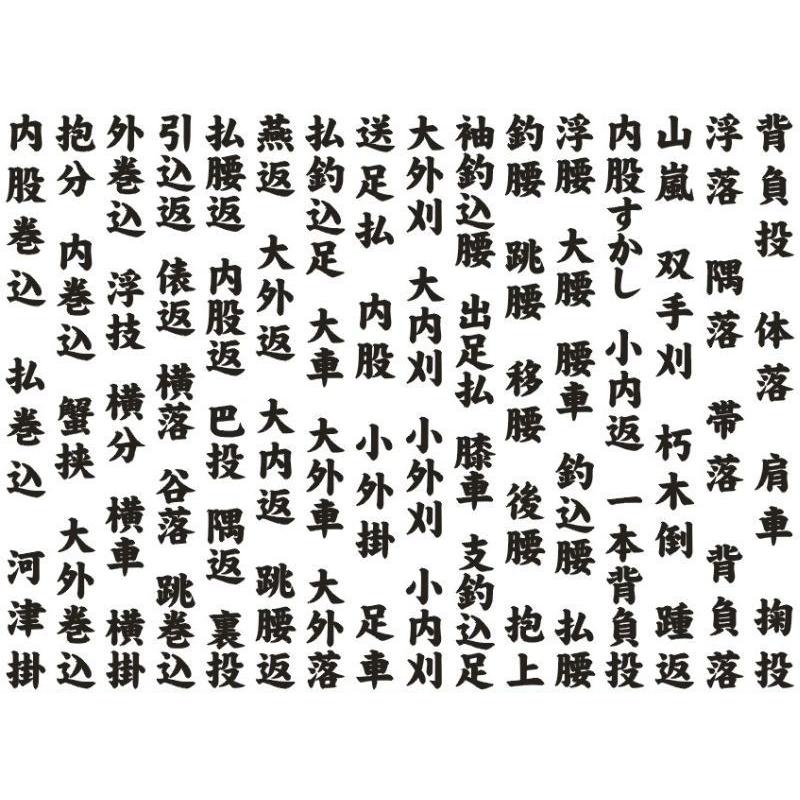 背負投 体落 肩車 掬投
浮落 隅落 帯落 背負落
山嵐 双手刈 朽木倒 踵返
内股すかし 小内返 一本背負投
浮腰 大腰 腰車 釣込腰 払腰
釣腰 跳腰 移腰 後腰 抱上
袖釣込腰 出足払 膝車 支釣込足
大外刈 大内刈 小外刈 小内刈
送足払 内股 小外掛 足車
払釣込足 大車 大外車 大外落
燕返 大外返 大内返 跳腰返
払腰返 内股返 巴投 隅返 裏投
引込返 俵返 横落 谷落 跳巻込
外巻込 浮技 横分 横車 横掛
抱分 内巻込 蟹挟 大外巻込
内股巻込 払巻込 河津掛